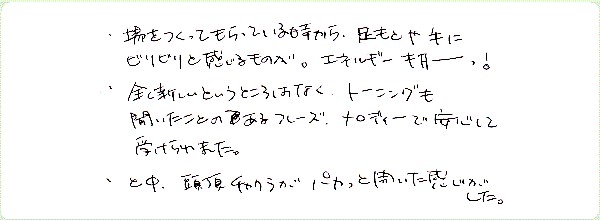 ・場をつくってもらっている時から、足もとや手に
ビリビリと感じるものが。エネルギーキターっ!
・全く新しいというところはなく、トーニングも
聞いたことのあるフレーズ、メロディーで安心して
受けられました。
・と中、頭頂チャクラが パカっと開いた感じが
した。